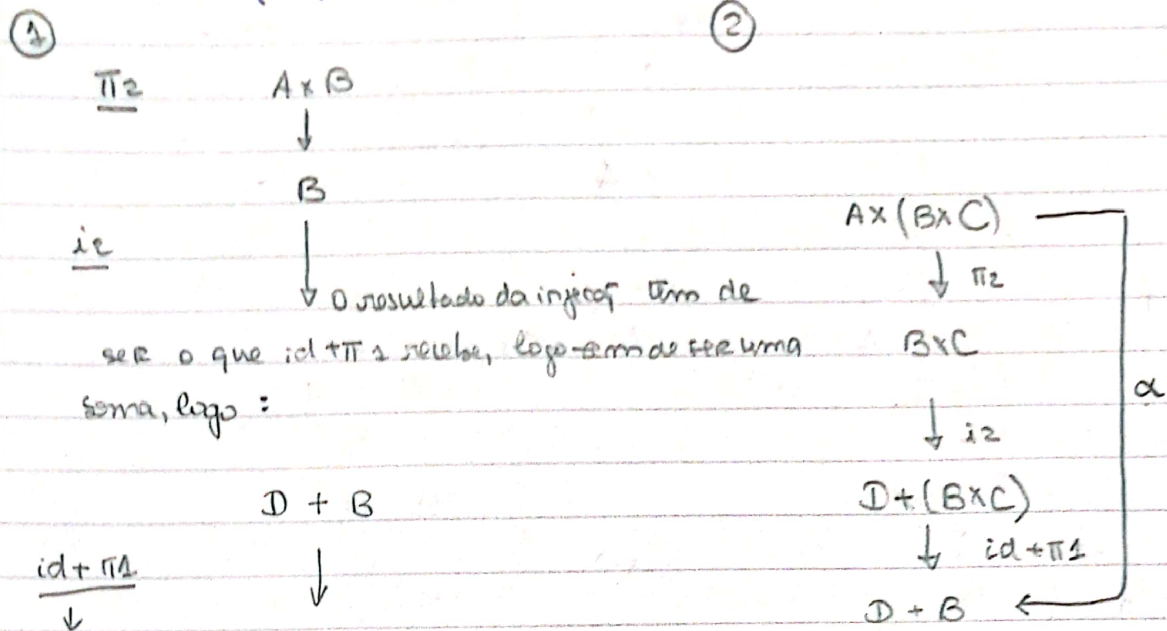 ①
②
π2 A × B
↓
B
i2
↓ O resultado da injeç tem de
ser o que id + π1 recebe, logo tem de ser uma
soma, logo :
D + B
id + π1 ↓
↓
A × (B × C)
↓ π2
B × C
↓ i2
α
D + (B × C)
↓ id + π1
D + B